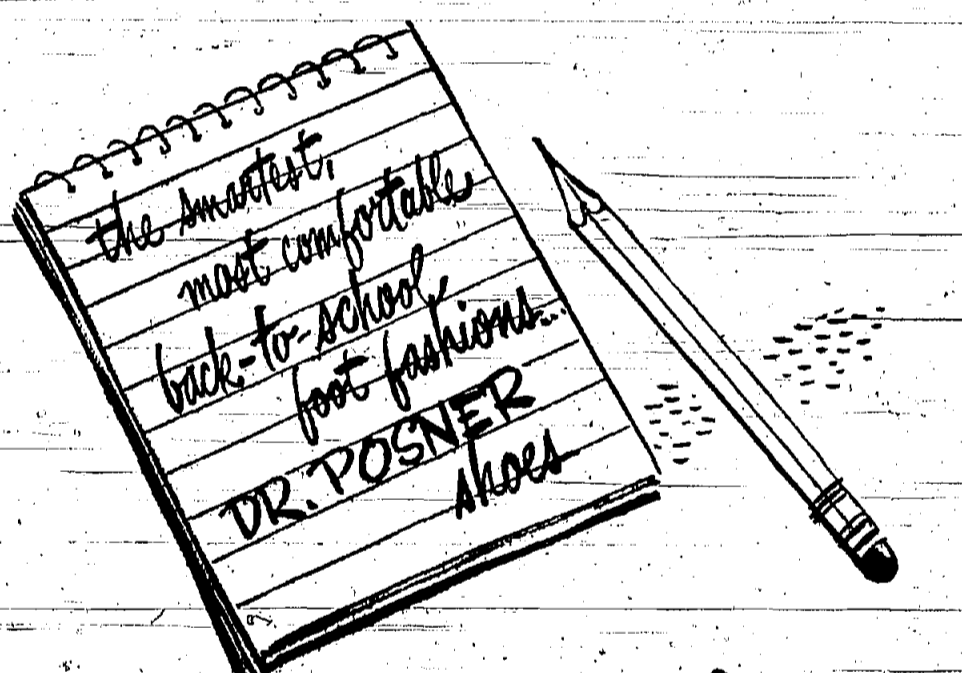 the smartest,
most comfortable
back-to-school
foot fashions...
DR. POSNER
shoes